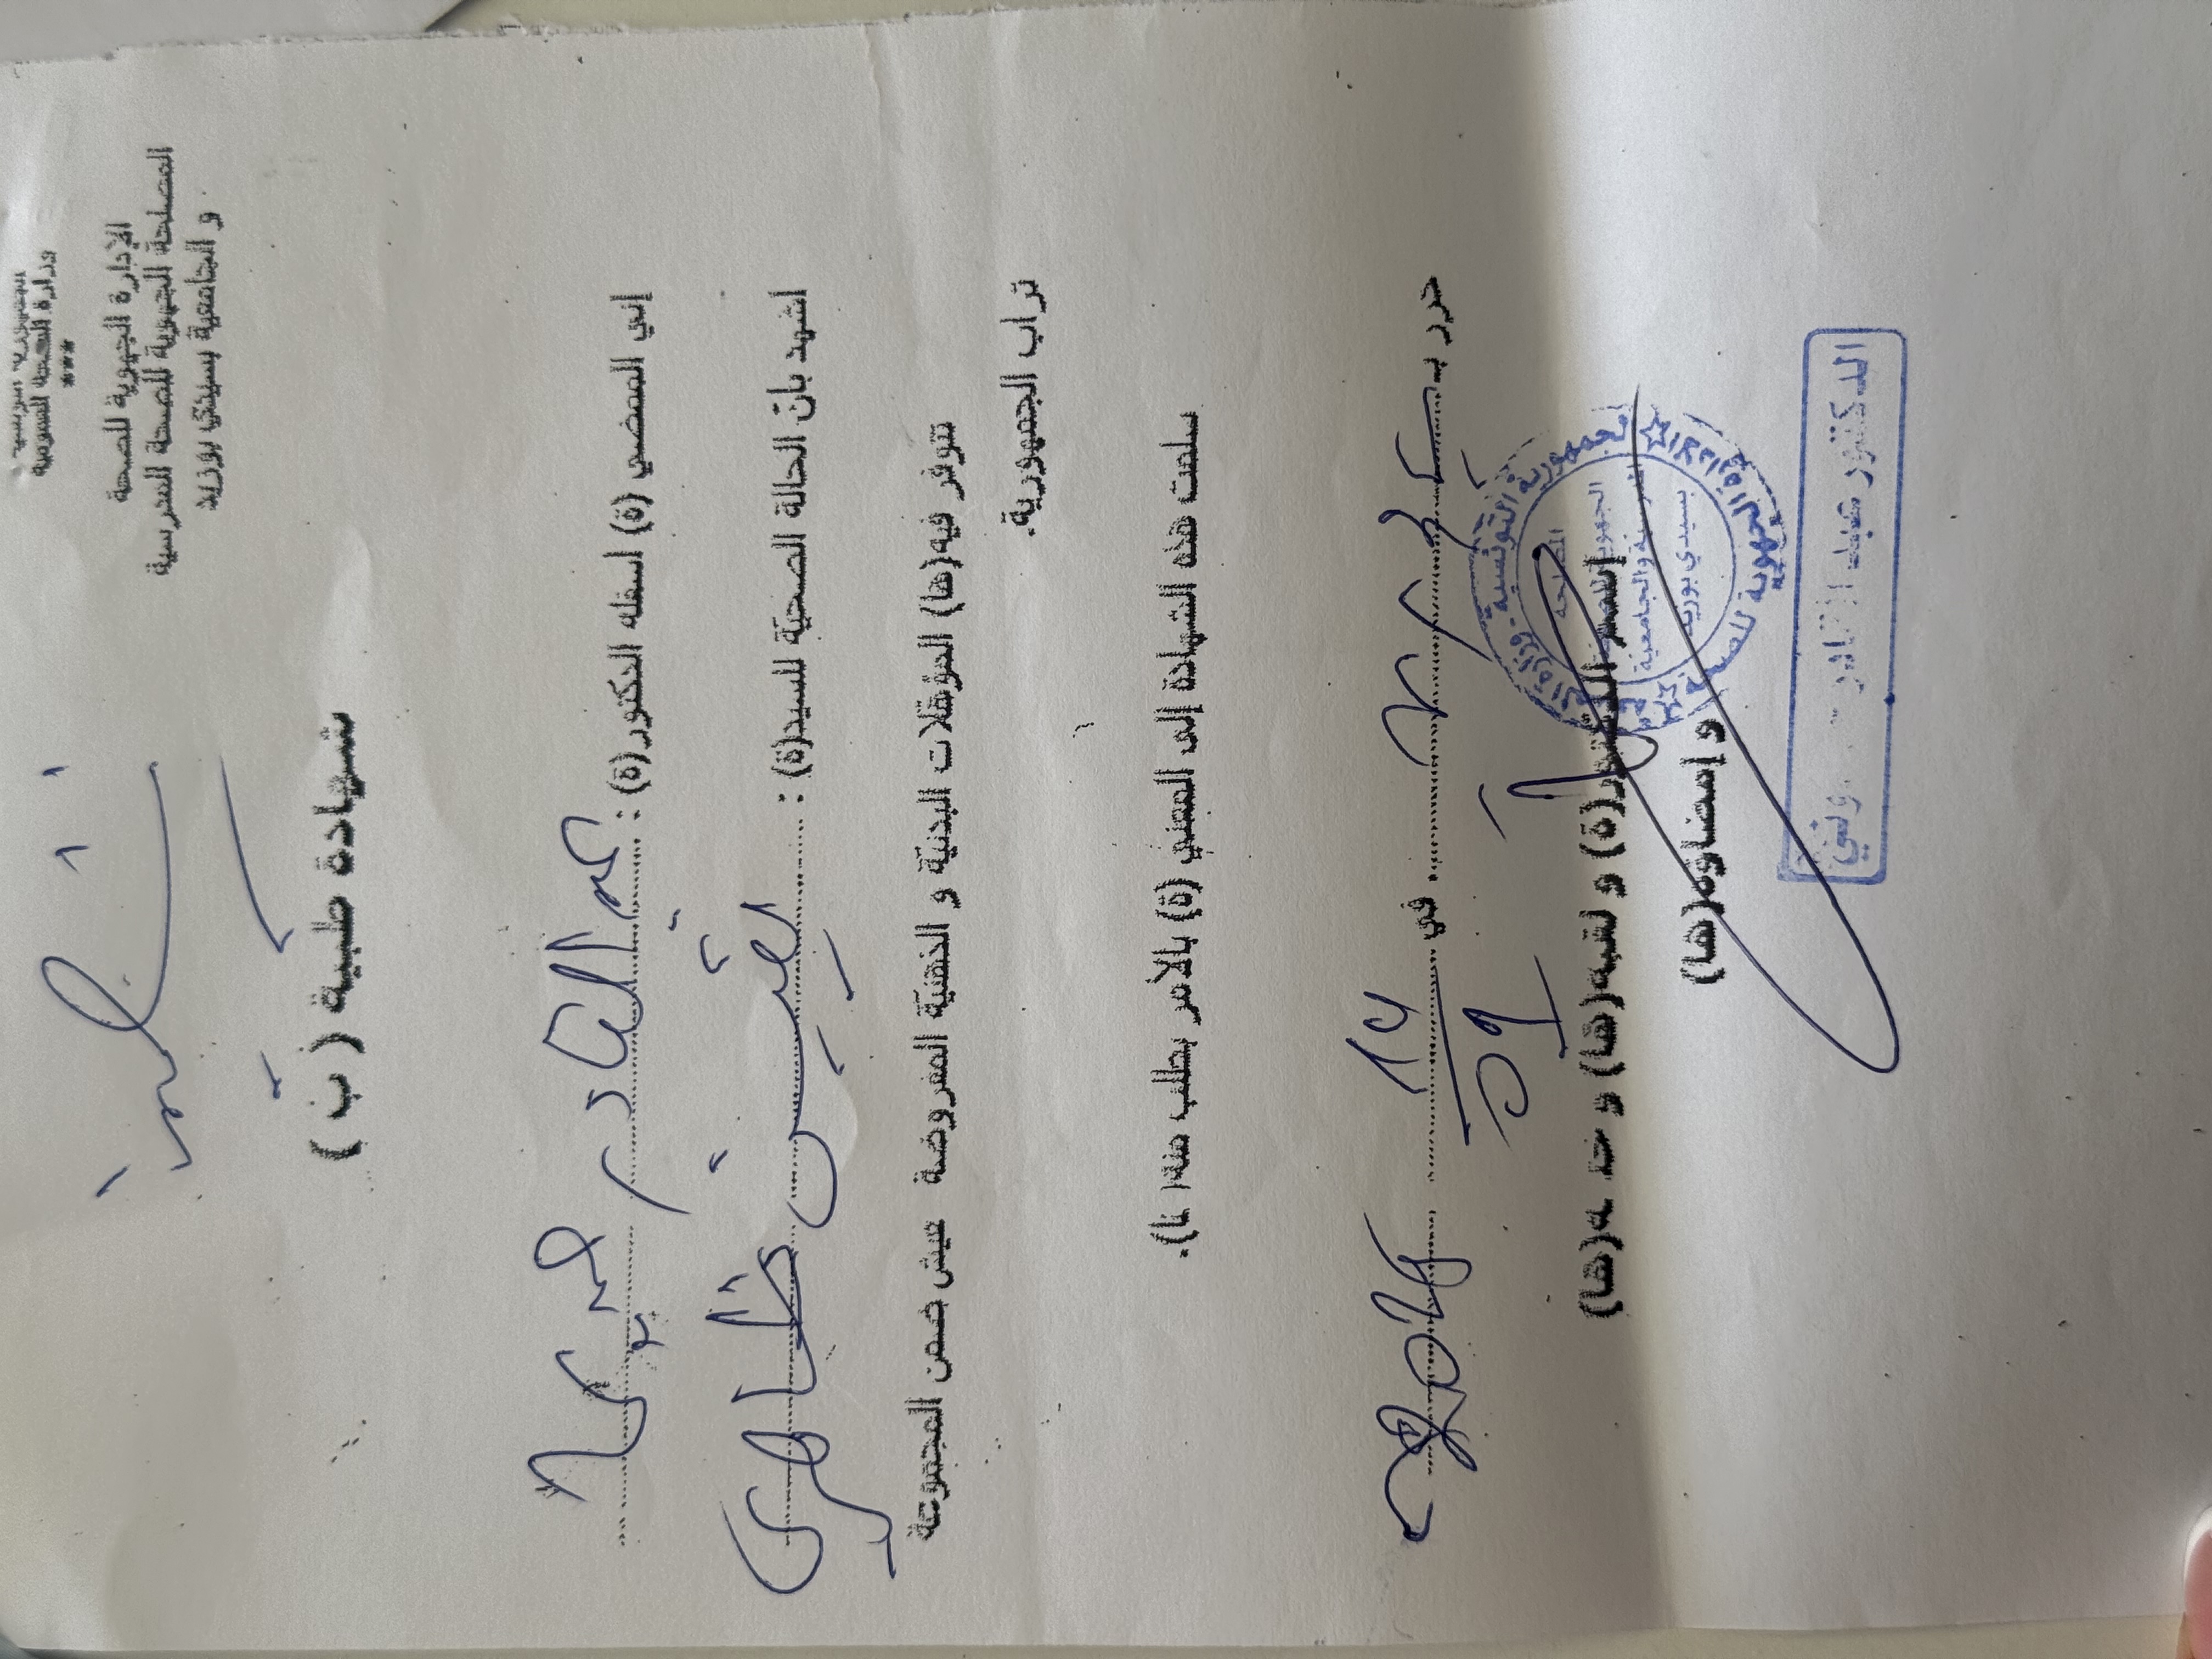 الجمهورية التونسية
وزارة الصحة العمومية
***
الإدارة الجهوية للصحة
المصلحة الجهوية للصحة المدرسية
و الجامعية بسيدي بوزيد
شهادة طبية ( ب )
إني الممضي (ة) أسفله الدكتور(ة) : عبد القادر
أشهد بأن الحالة الصحيّة للسيد(ة) :
تتوفر فيه(ها) المؤهّلات البدنيّة و الذهنيّة المفروضة عيش ضمن المجموعة
تراب الجمهورية.
سلمت هذه الشهادة إلى المعني (ة) بالأمر بطلب منه( ها).
حرر بـ في 14
01
إسم الدكتور(ة) و لقبه(ها) و خـ ـه(ها)
و إمضاؤه(ها)
الجمهورية التونسية - وزارة
الإدارة الجهوية للصحة
المصلحة
الجهوية
والجامعية
بسيدي بوزيد
الدكتور عبد القادر